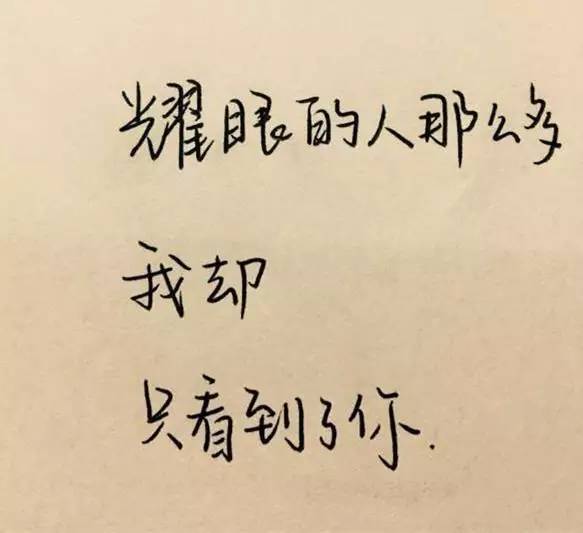 耀眼的人那么多
我却
只看到了你.